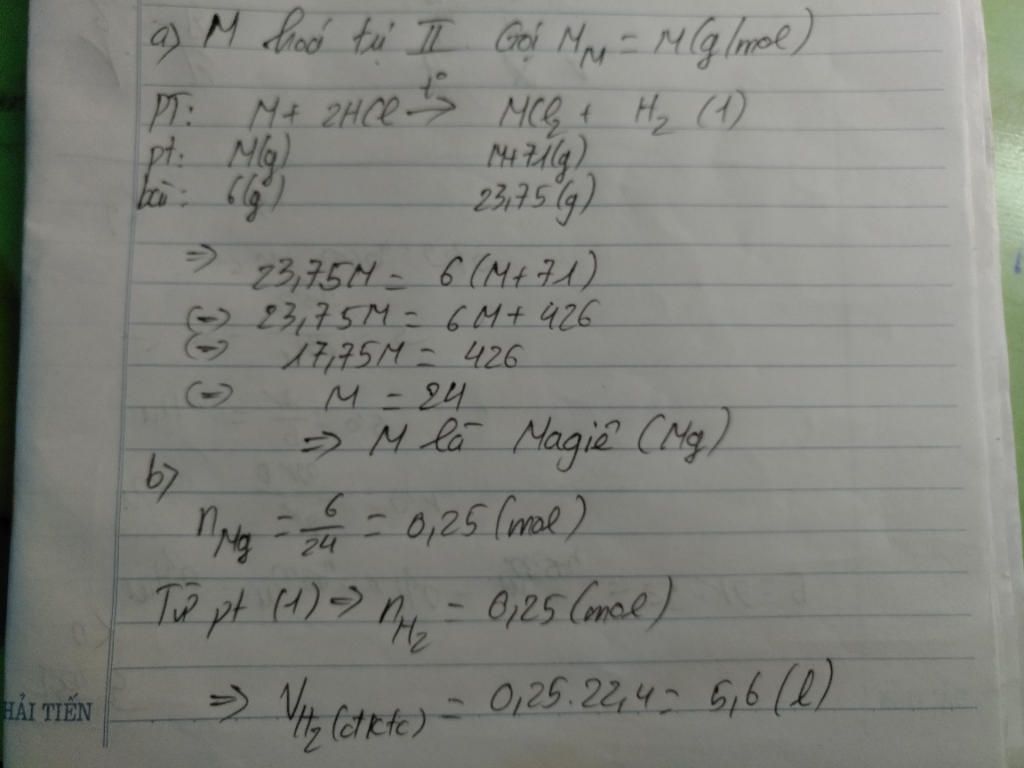 a) M hoá trị II. Gọi M_M = M(g/mol)
PT: M + 2HCl -t°-> MCl₂ + H₂ (1)
pt: M(g) M+71(g)
bài: 6(g) 23,75(g)
=> 23,75M = 6(M+71)
(=) 23,75M = 6M + 426
(=) 17,75M = 426
(=) M = 24
=> M là Magiê (Mg)
b)
n_Mg = 6/24 = 0,25 (mol)
Từ pt (1) => n_H₂ = 0,25 (mol)
=> V_H₂(đktc) = 0,25.22,4 = 5,6 (l)
HẢI TIẾN